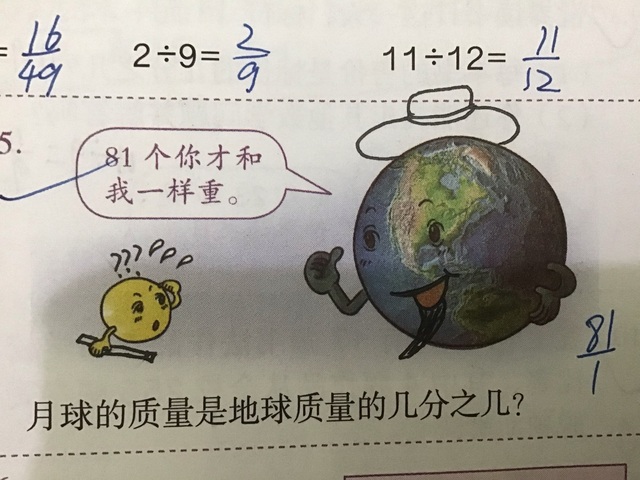 = 16/49 2÷9= 2/9 11÷12= 11/12
5.
81 个你才和
我一样重。
???
81/1
月球的质量是地球质量的几分之几?